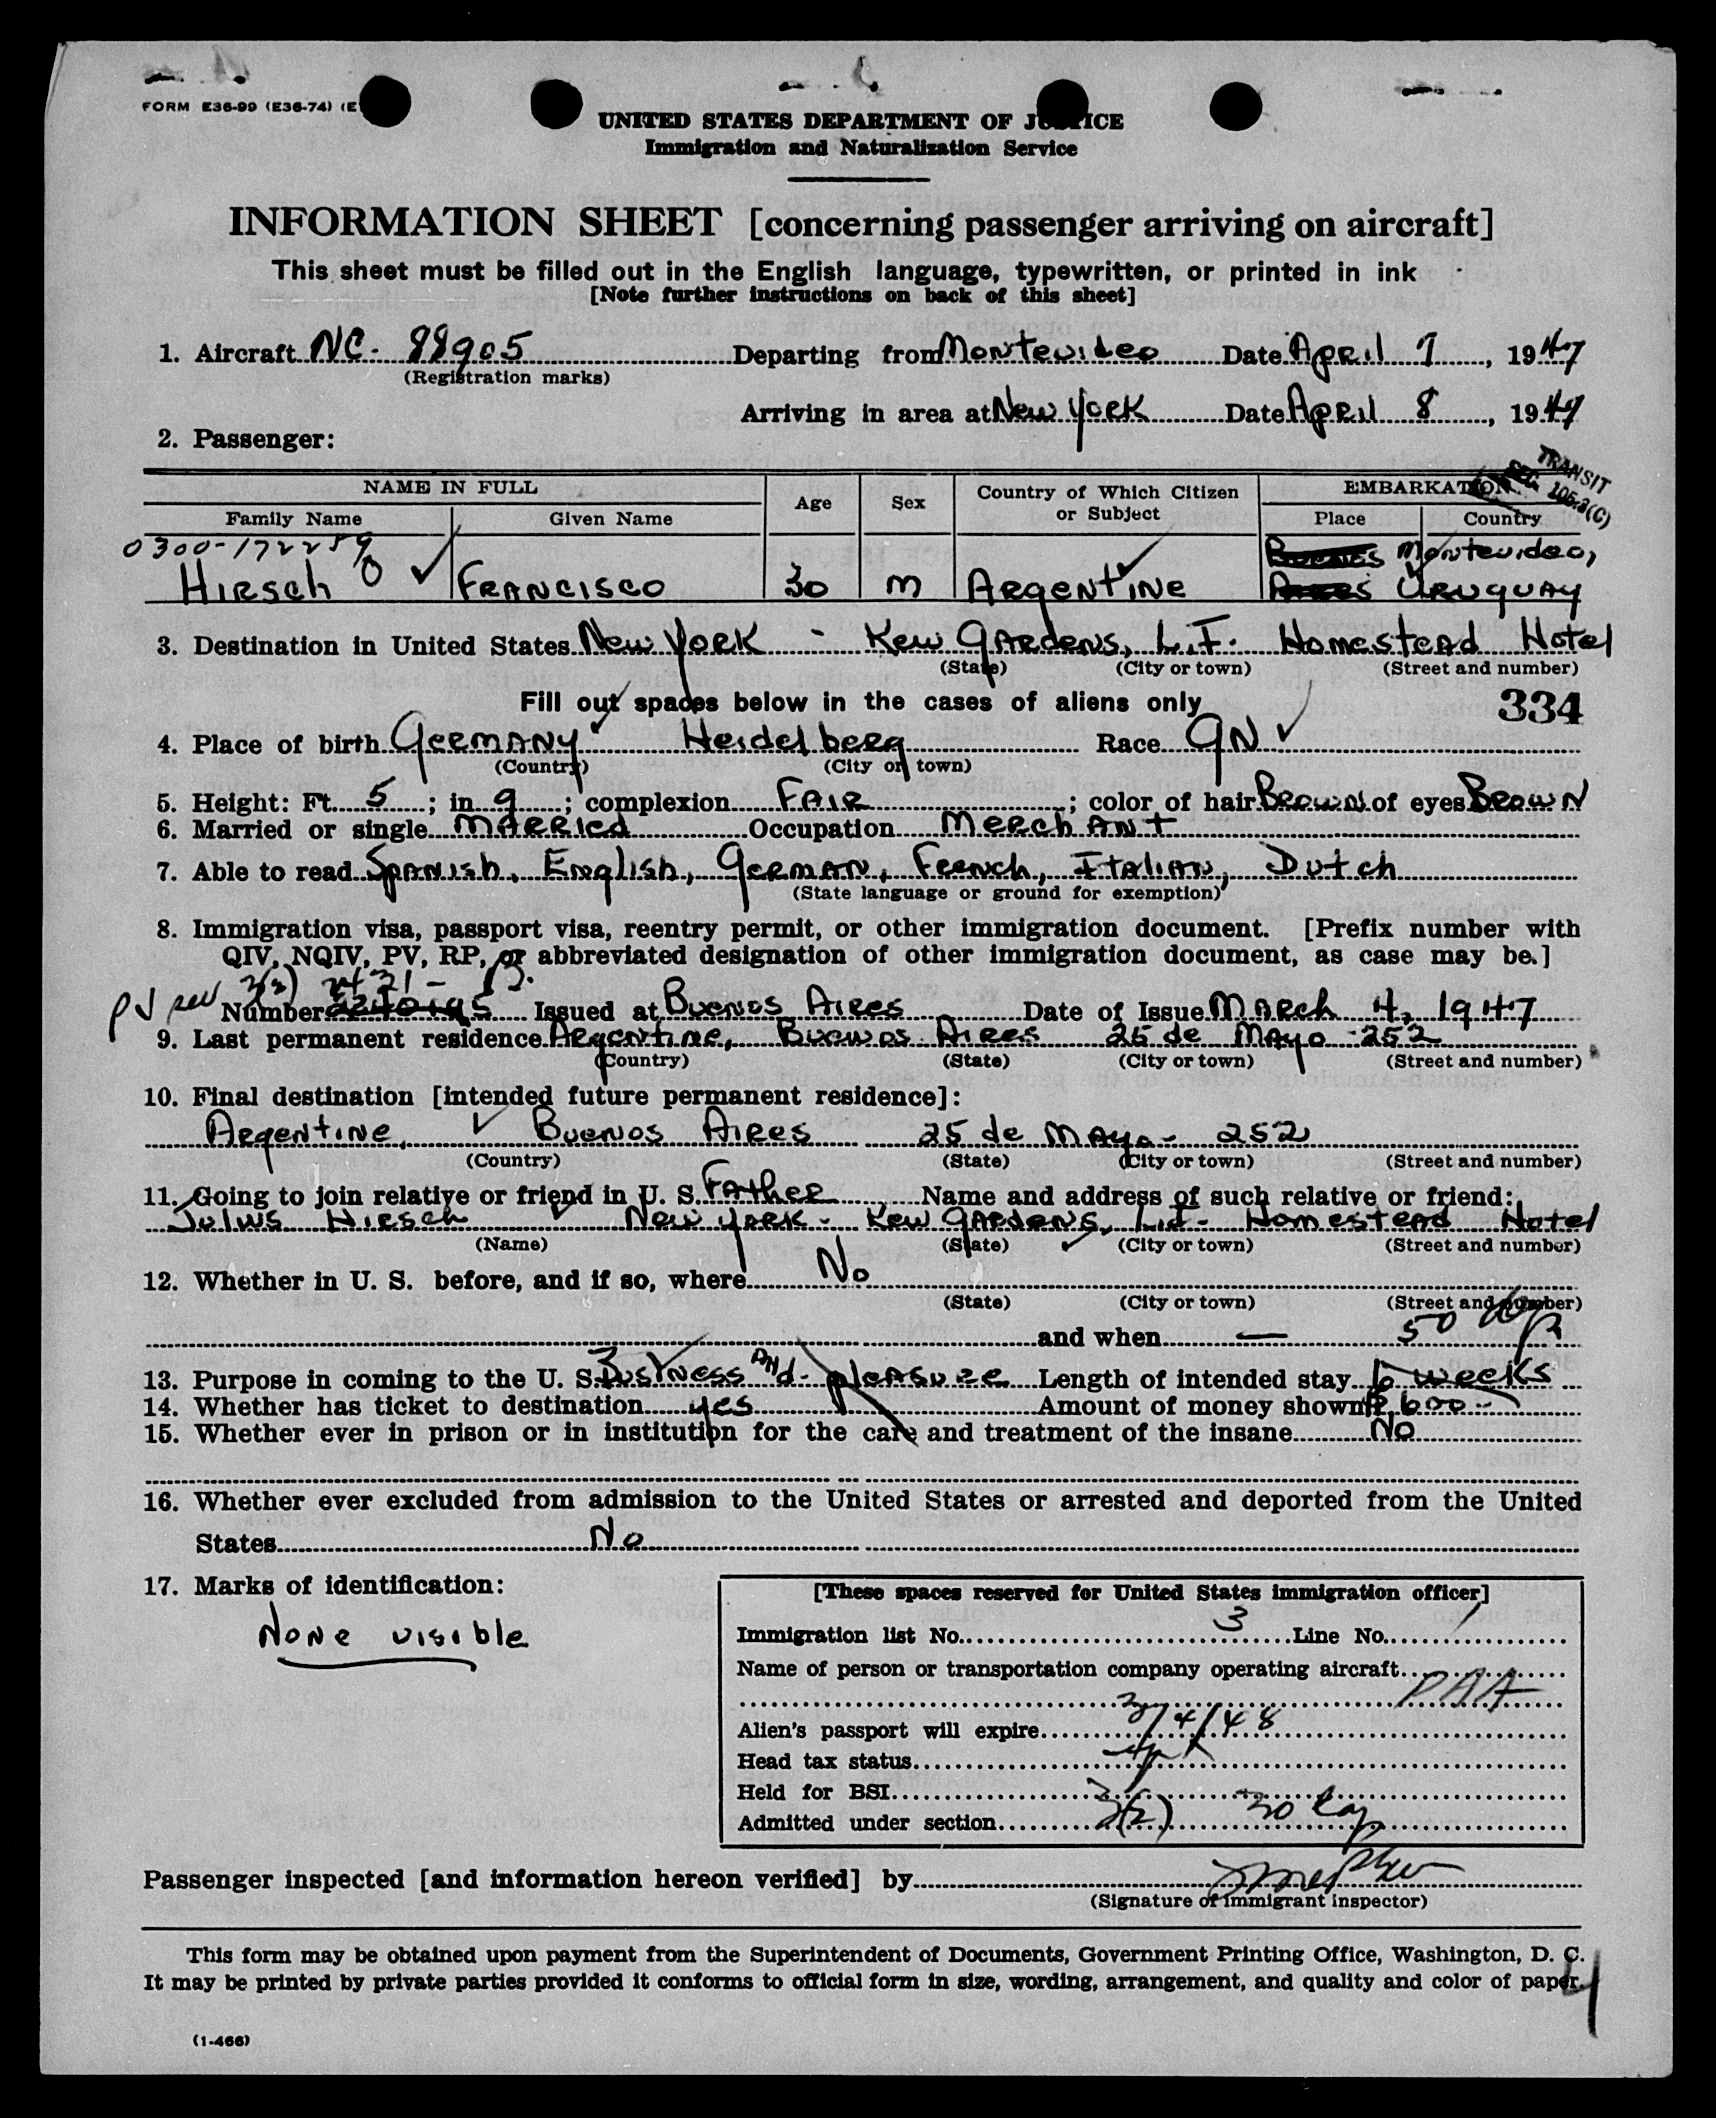 FORM E36-99 (E36-74) (E
UNITED STATES DEPARTMENT OF JUSTICE
Immigration and Naturalization Service
INFORMATION SHEET [concerning passenger arriving on aircraft]
This sheet must be filled out in the English language, typewritten, or printed in ink
[Note further instructions on back of this sheet]
1. Aircraft NC- 88905 Departing from Montevideo Date April 7, 1947
(Registration marks)
Arriving in area at New York Date April 8, 1947
2. Passenger:
TRANSIT
SEC. 105.3(C)
NAME IN FULL Age Sex Country of Which Citizen or Subject EMBARKATION
Family Name Given Name Place Country
0300-172259
Hirsch Francisco 30 M Argentine Buenos Aires Montevideo, Uruguay
3. Destination in United States New York - Kew Gardens, L.I. Homestead Hotel
(State) (City or town) (Street and number)
Fill out spaces below in the cases of aliens only
334
4. Place of birth Germany Heidelberg Race GN
(Country) (City or town)
5. Height: Ft. 5; in 9; complexion Fair; color of hair Brown of eyes Brown
6. Married or single Married Occupation Merchant
7. Able to read Spanish, English, German, French, Italian, Dutch
(State language or ground for exemption)
8. Immigration visa, passport visa, reentry permit, or other immigration document. [Prefix number with
QIV, NQIV, PV, RP, or abbreviated designation of other immigration document, as case may be.]
PV 3(2) 2431 -
Number Issued at Buenos Aires Date of Issue March 4, 1947
9. Last permanent residence Argentine, Buenos Aires 25 de Mayo 252
(Country) (State) (City or town) (Street and number)
10. Final destination [intended future permanent residence]:
Argentine, Buenos Aires 25 de Mayo - 252
(Country) (State) (City or town) (Street and number)
11. Going to join relative or friend in U. S. Father Name and address of such relative or friend:
Julius Hirsch New York - Kew Gardens, L.I. - Homestead Hotel
(Name) (State) (City or town) (Street and number)
12. Whether in U. S. before, and if so, where No
(State) (City or town) (Street and number)
and when — 50 days
13. Purpose in coming to the U. S. Business and pleasure Length of intended stay 6 weeks
14. Whether has ticket to destination yes Amount of money shown $ 600.-
15. Whether ever in prison or in institution for the care and treatment of the insane No
16. Whether ever excluded from admission to the United States or arrested and deported from the United
States No
17. Marks of identification:
None visible
[These spaces reserved for United States immigration officer]
Immigration list No. 3 Line No. 1
Name of person or transportation company operating aircraft
PAA
Alien's passport will expire 3/4/48
Head tax status
Held for BSI
Admitted under section 3(2)
Passenger inspected [and information hereon verified] by
(Signature of immigrant inspector)
This form may be obtained upon payment from the Superintendent of Documents, Government Printing Office, Washington, D. C.
It may be printed by private parties provided it conforms to official form in size, wording, arrangement, and quality and color of paper.
4
(1-466)